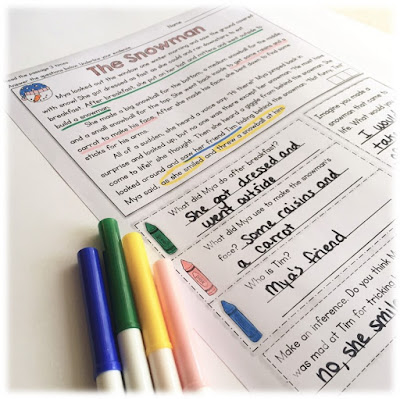 Read the passage 3 times
Answer the questions below. Underline your evidence
Name
The Snowman
Mya looked out the window one winter morning and saw the ground covered
with snow. She got dressed as fast as she could and ran downstairs to eat
breakfast. After breakfast, she put on her and mittens and went outside to
build a snowman.
She made a big snowball for the bottom, a medium snowball for the middle
and a small snowball for the top. She went back inside to get some raisins and a
carrot to make his face. After she made his face, she went down to find some
sticks for his arms.
All of a sudden, she heard a voice say, "Hi there!" Mya jumped back in
surprise and looked up, but no one was there.
come to life!" she thought. Then she heard a giggle from behind the snowman. She
looked around and saw her friend Tim hiding behind the snowman.
Mya said, as she smiled and threw a snowball at him.
What did Mya do after breakfast?
She got dressed and
went outside
What did Mya use to make the snowman's
face? Some raisins and
a carrot
Who is Tim?
Mya's friend
Imagine you made a
snowman that came to
life. What would you
I woul
Make an inference. Do you think M
was mad at Tim for tricking
no, she smile